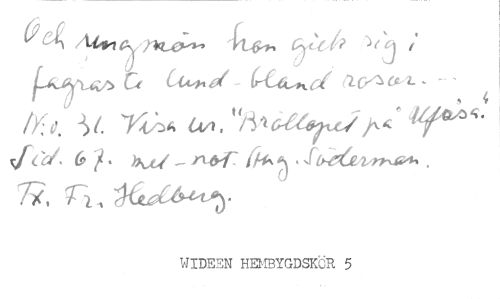 Och ungmön hon gick sig i
fagraste lund - bland rosor. --
N:o. 31. Visa ur. "Bröllopet på Ulfåsa."
Sid. 67. mel-not. Aug. Söderman.
Tx. Fr. Hedberg.
WIDEEN HEMBYGDSKÖR 5